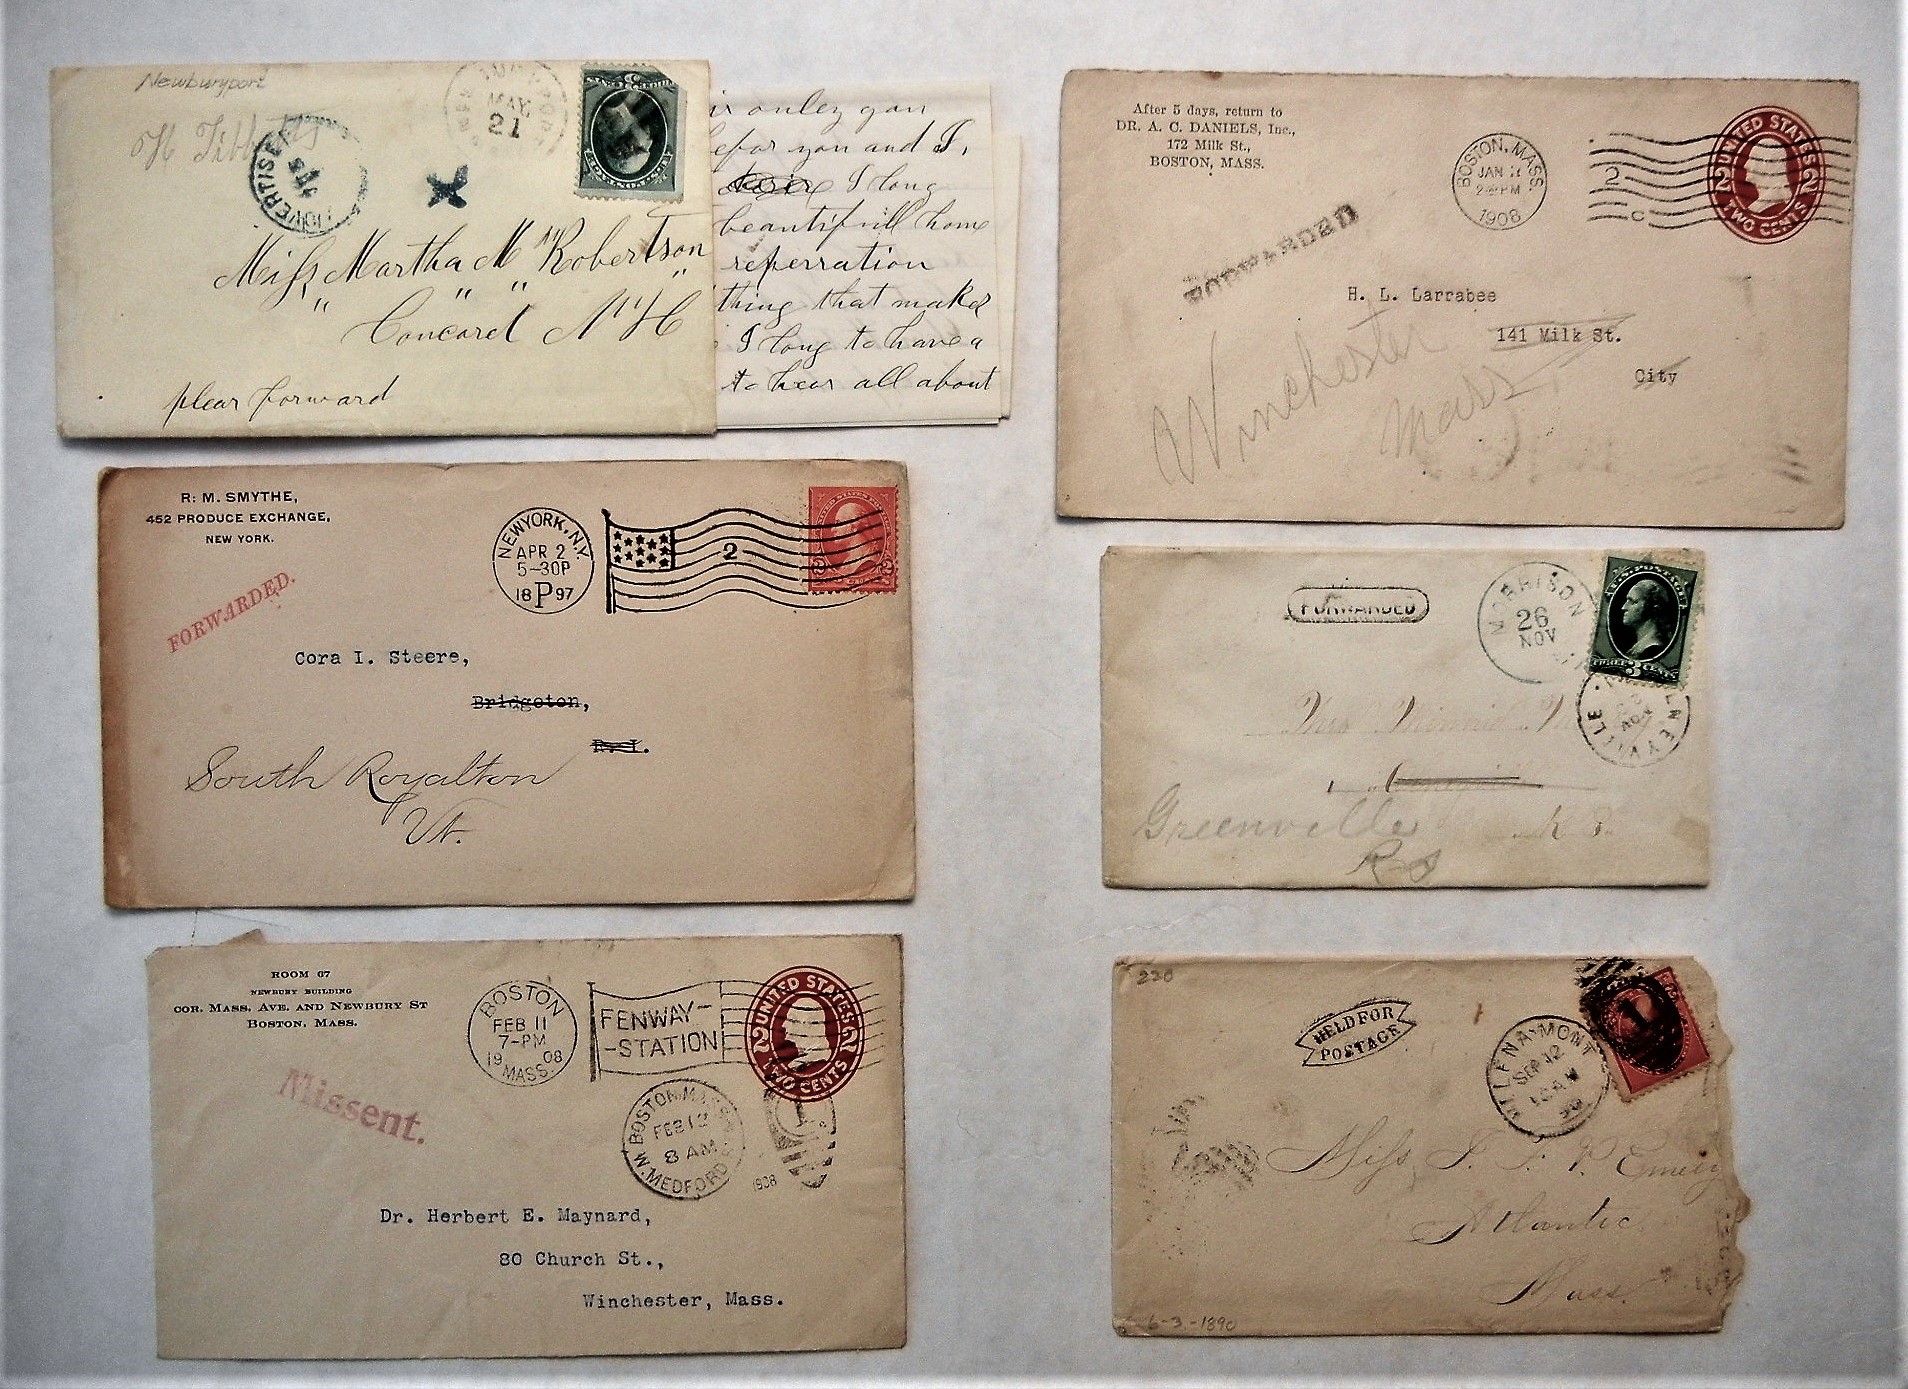 Newburyport
H Tibbetts
ADVERTISED
MAY
21
Miss Martha M Robertson
Concord N H
pleas forward
onley you
you and I,
I long
beautifull home
reperration
thing that makes
I long to have a
to hear all about
After 5 days, return to
DR. A. C. DANIELS, Inc.,
172 Milk St.,
BOSTON, MASS.
BOSTON, MASS.
JAN
1908
2
C
UNITED STATES
2 2
TWO CENTS
FORWARDED
H. L. Larrabee
141 Milk St.
City
Winchester
Mass
R. M. SMYTHE,
452 PRODUCE EXCHANGE,
NEW YORK.
FORWARDED.
NEW YORK, N.Y.
APR 2
5-30P
18 P 97
2
2 2
Cora I. Steere,
Bridgeton,
R. I.
South Royalton
Vt.
FORWARDED
MORRISON
26
NOV
U.S. POSTAGE
3 CENTS
Mrs Minnie
Greenville
R I
ROOM 67
NEWBURY BUILDING
COR. MASS. AVE. AND NEWBURY ST
BOSTON, MASS.
BOSTON
FEB 11
7-PM
19 08
MASS.
FENWAY-
-STATION
UNITED STATES
2 2
TWO CENTS
Missent.
BOSTON, MASS.
FEB 12
8 AM
W. MEDFORD
1908
Dr. Herbert E. Maynard,
80 Church St.,
Winchester, Mass.
220
HELD FOR
POSTAGE
HELENA, MONT
SEP 12
10 AM
90
1
Miss
Emery
Atlantic
Mass.
6-3-1890